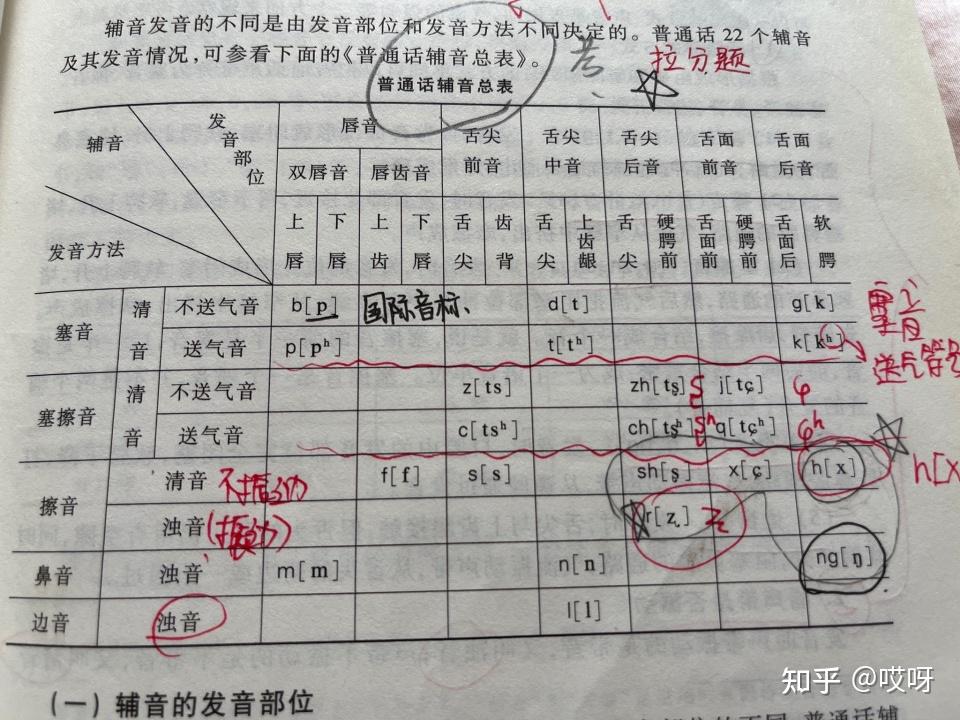 辅音发音的不同是由发音部位和发音方法不同决定的。普通话22个辅音
及其发音情况，可参看下面的《普通话辅音总表》。
考
拉分题
普通话辅音总表
辅音 发音部位 唇音 舌尖前音 舌尖中音 舌尖后音 舌面前音 舌面后音
双唇音 唇齿音
发音方法 上唇 下唇 上齿 下唇 舌尖 齿背 舌尖 上齿龈 舌尖 硬腭前 舌面前 硬腭前 舌面后 软腭
塞音 清音 不送气音 b[p] 国际音标、 d[t] g[k]
送气音 p[pʰ] t[tʰ] k[kʰ]
送气符号
塞擦音 清音 不送气音 z[ts] zh[tʂ] j[tɕ]
送气音 c[tsʰ] ch[tʂʰ] q[tɕʰ]
擦音 清音 不振动 f[f] s[s] sh[ʂ] x[ɕ] h[x] h[x
浊音 (振动) r[ʐ]
鼻音 浊音 m[m] n[n] ng[ŋ]
边音 浊音 l[l]
(一) 辅音的发音部位
知乎 @哎呀